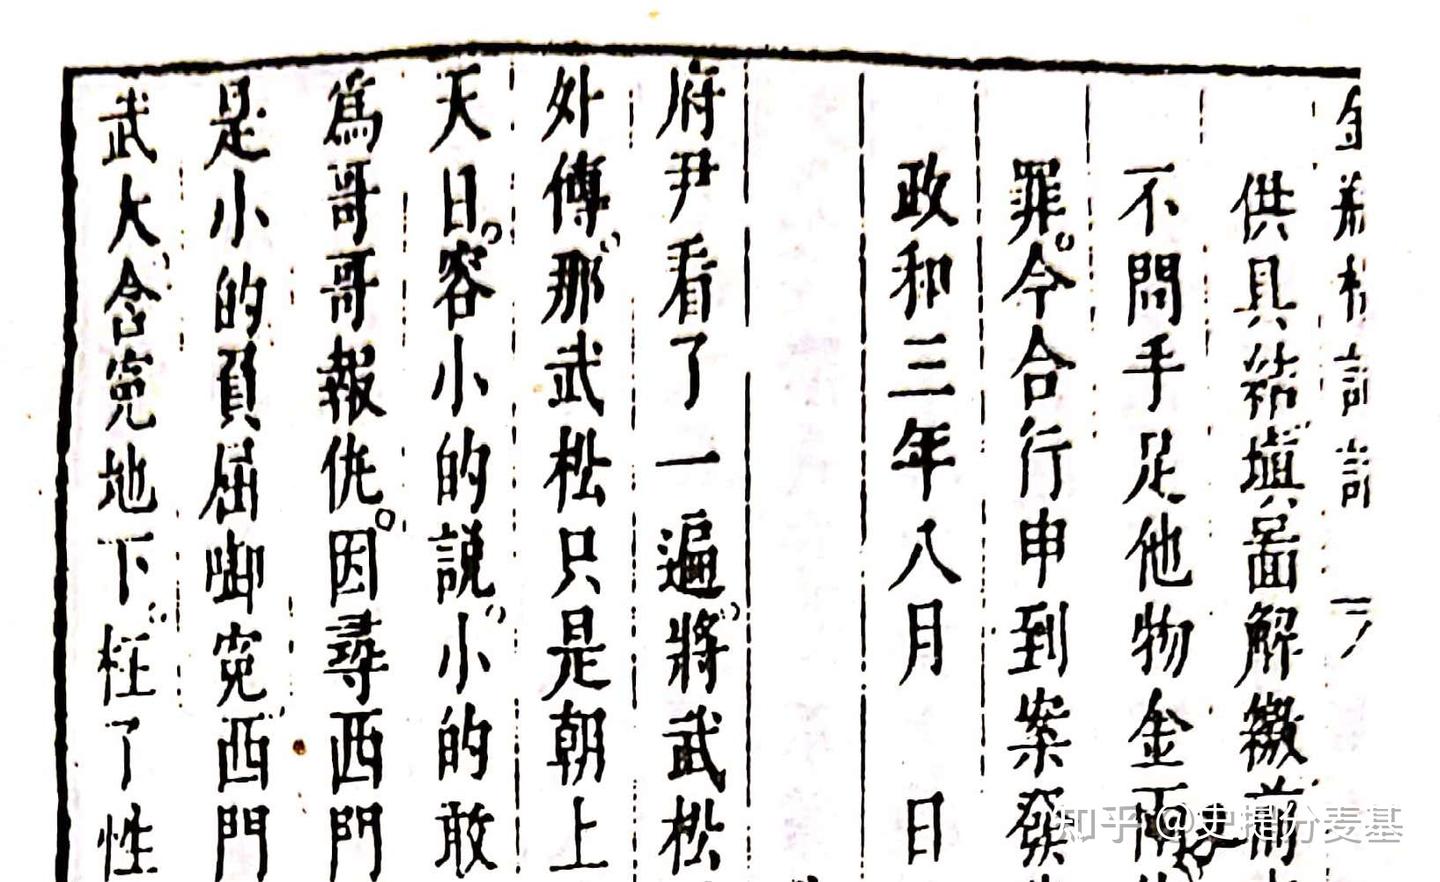 金瓶梅詞話
供具結塡啚解繳前
不問手足他物金兩
罪。今合行申到案發
政和三年八月　日
府尹看了一遍、將武松
外傳、那武松只是朝上
天日。容小的說、小的敢
爲哥哥報仇。因尋西門
是小的負屈啣寃、西門
武大、含寃地下、枉了性
知乎 @史提分麦基